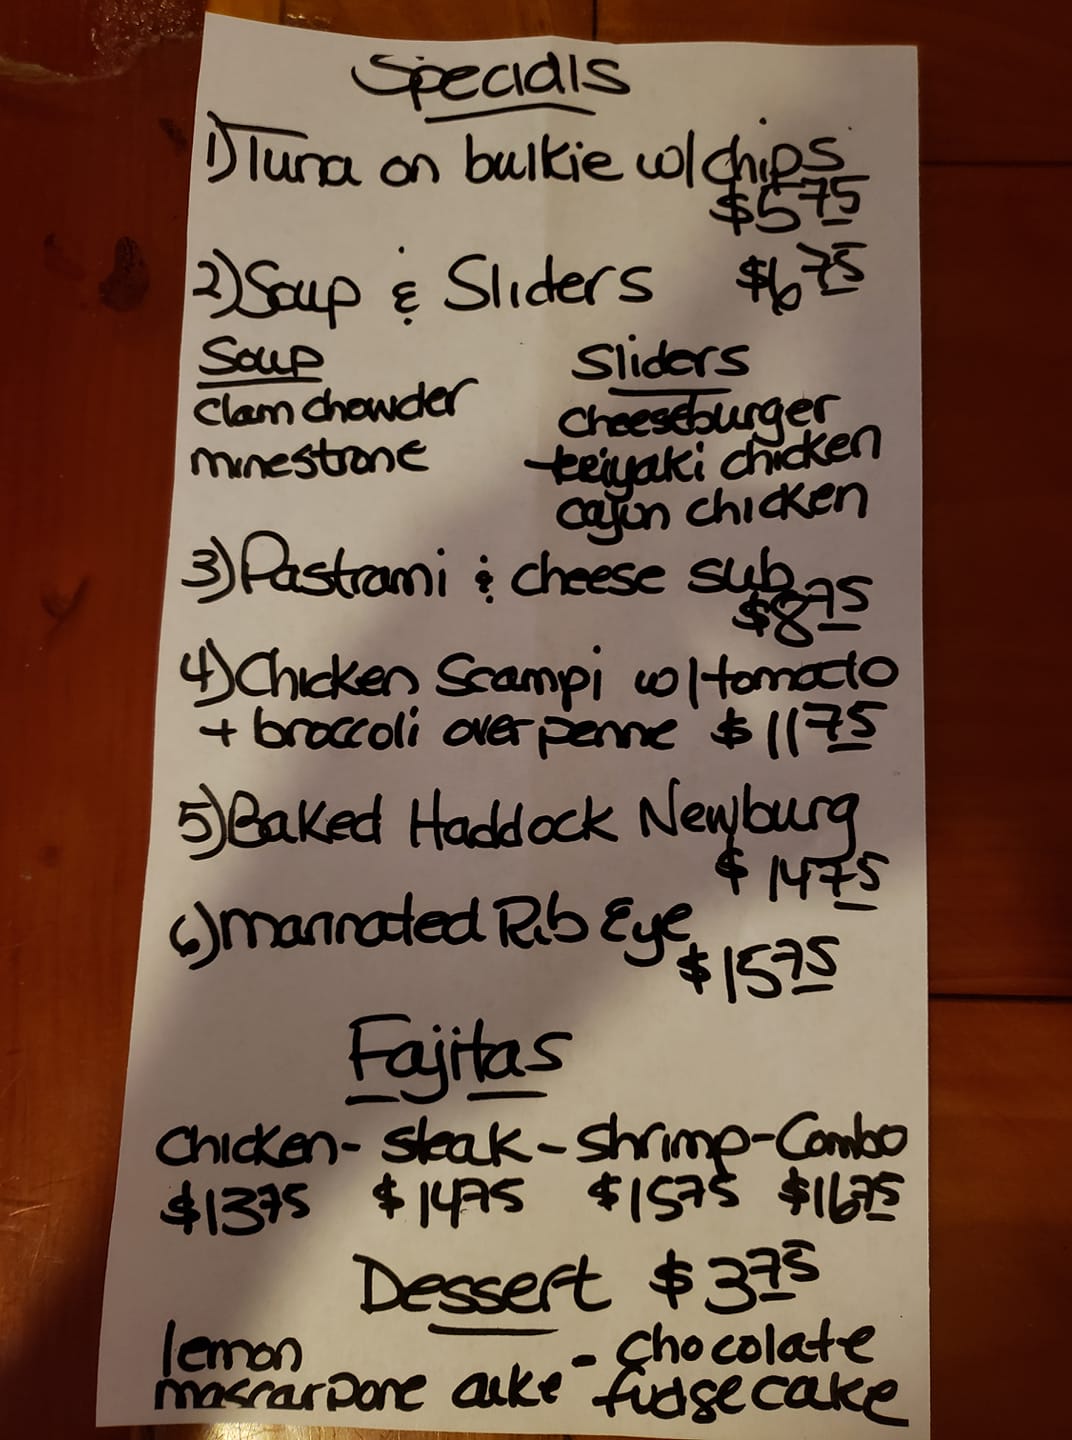 Specials
1) Tuna on bulkie w/ chips
$5.75
2) Soup & Sliders $6.75
Soup Sliders
clam chowder cheeseburger
minestrone teriyaki chicken
cajun chicken
3) Pastrami & cheese sub
$8.75
4) Chicken Scampi w/ tomato
+ broccoli over penne $11.75
5) Baked Haddock Newburg
$14.75
6) marinated Rib Eye
$15.75
Fajitas
Chicken - steak - shrimp - Combo
$13.75 $14.75 $15.75 $16.75
Dessert $3.75
lemon - chocolate
mascarpone cake fudge cake